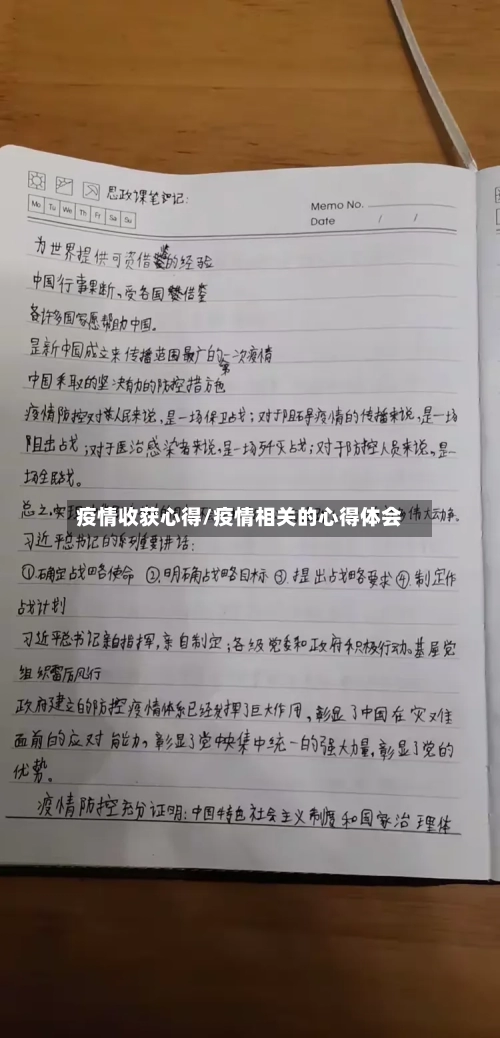 思政课笔记:
Memo No.
Mo Tu We Th Fr Sa Su
Date / /
为世界提供可资借鉴的经验
中国行事果断、受各国借鉴
各许多国家愿帮助中国。
是新中国成立来传播范围最广的第一次疫情
中国采取的坚决有力的防控措方色
疫情防控对于人民来说,是一场保卫战;对于阻碍疫情的传播来说,是一场
阻击战;对于医治感染者来说,是一场歼灭战;对于防控人员来说,是一
场全民战。
总之,
伟大动争。
疫情收获心得/疫情相关的心得体会
习近平总书记的系列重要讲话:
①确定战略使命 ②明确战略目标 ③提出战略要求 ④制定作
战计划
习近平总书记亲自指挥,亲自制定;各级党委和政府积极行动。基层党
组织雷厉风行
政府建立的防控疫情体系已经发挥了巨大作用,彰显了中国在灾难
面前的应对能力,彰显了党中央集中统一的强大力量,彰显了党的
优势。
疫情防控充分证明:中国特色社会主义制度和国家治理体